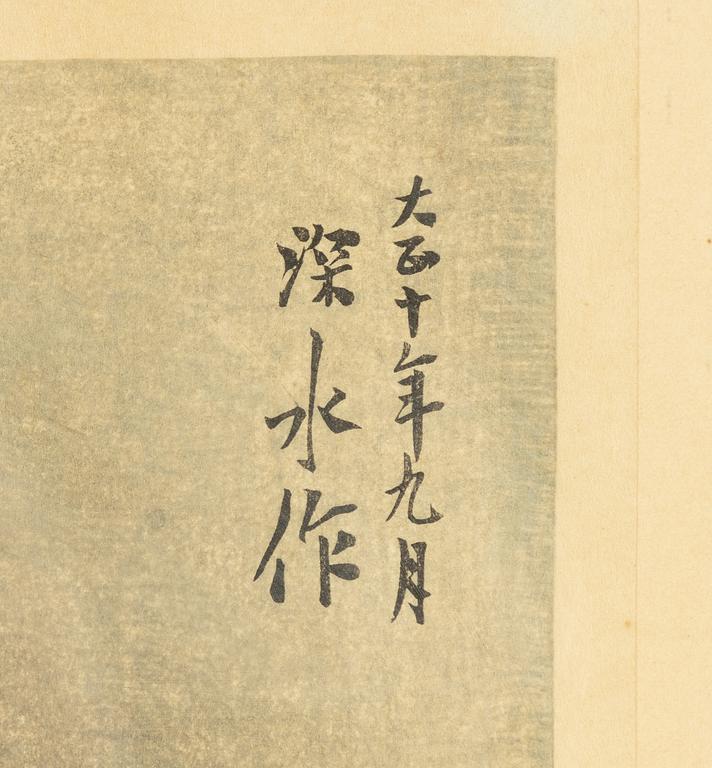 大正十年九月
深水作